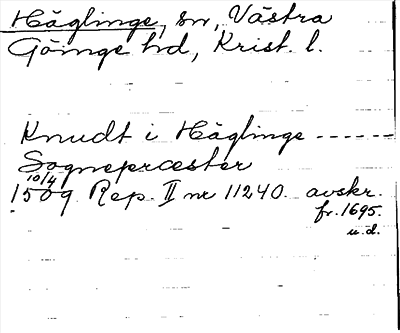 Häglinge, sn, Västra
Göinge hd, Krist. l.
Knudt i Häglinge ------
Sognepræster
10/4
1509 Rep. II nr 11240. avskr.
fr. 1695.
u.d.